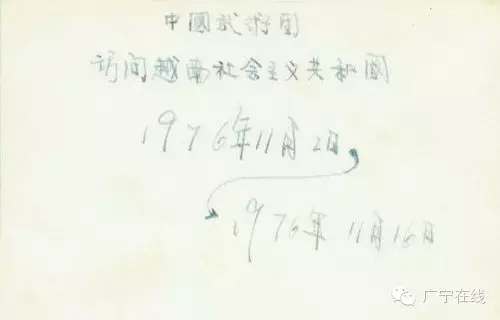 中國武術團
访问越南社会主义共和國
1976年11月2日
1976年11月16日
广宁在线